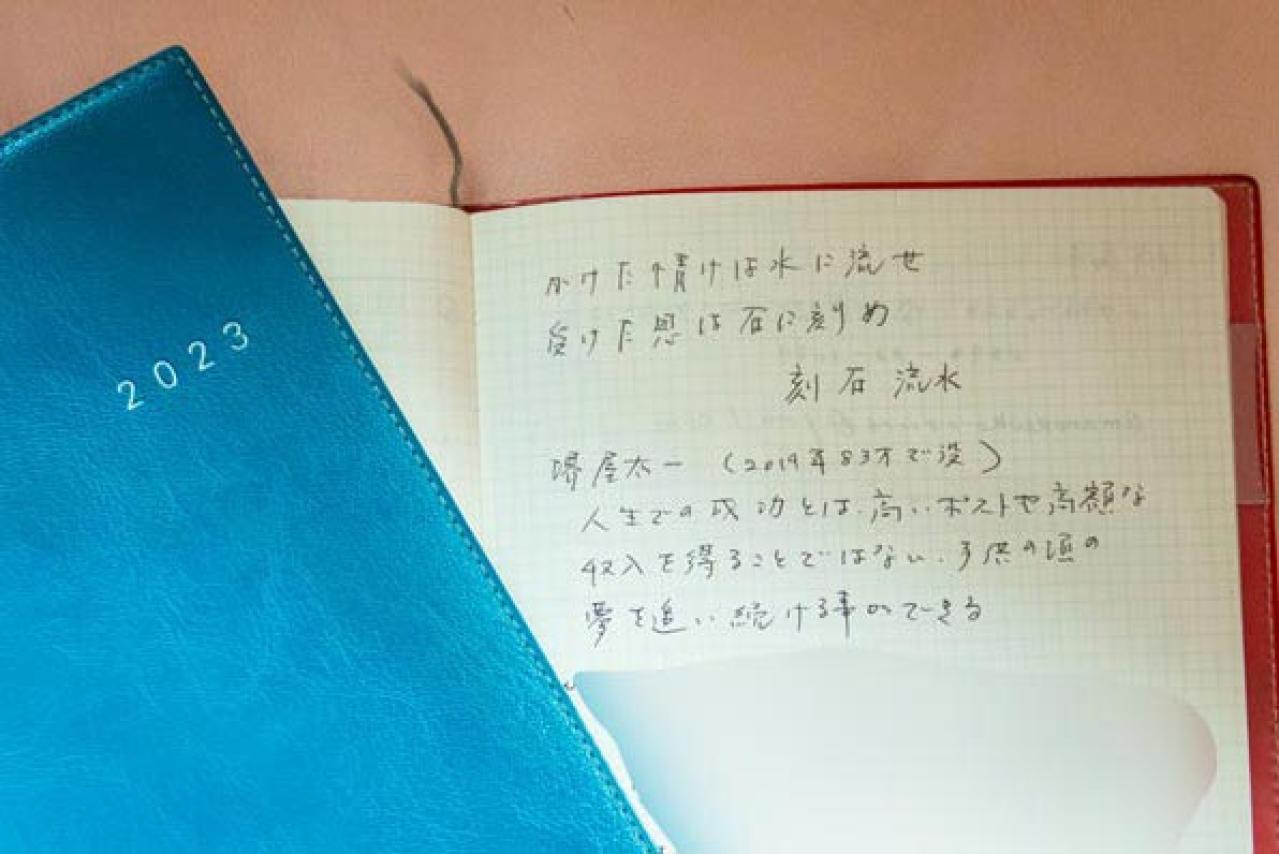 2023
かけた情けは水に流せ
受けた恩は石に刻め
刻石流水
堺屋太一 (2019年83才で没)
人生での成功とは、高いポストや高額な
収入を得ることではない、子供の頃の
夢を追い続ける事ができる